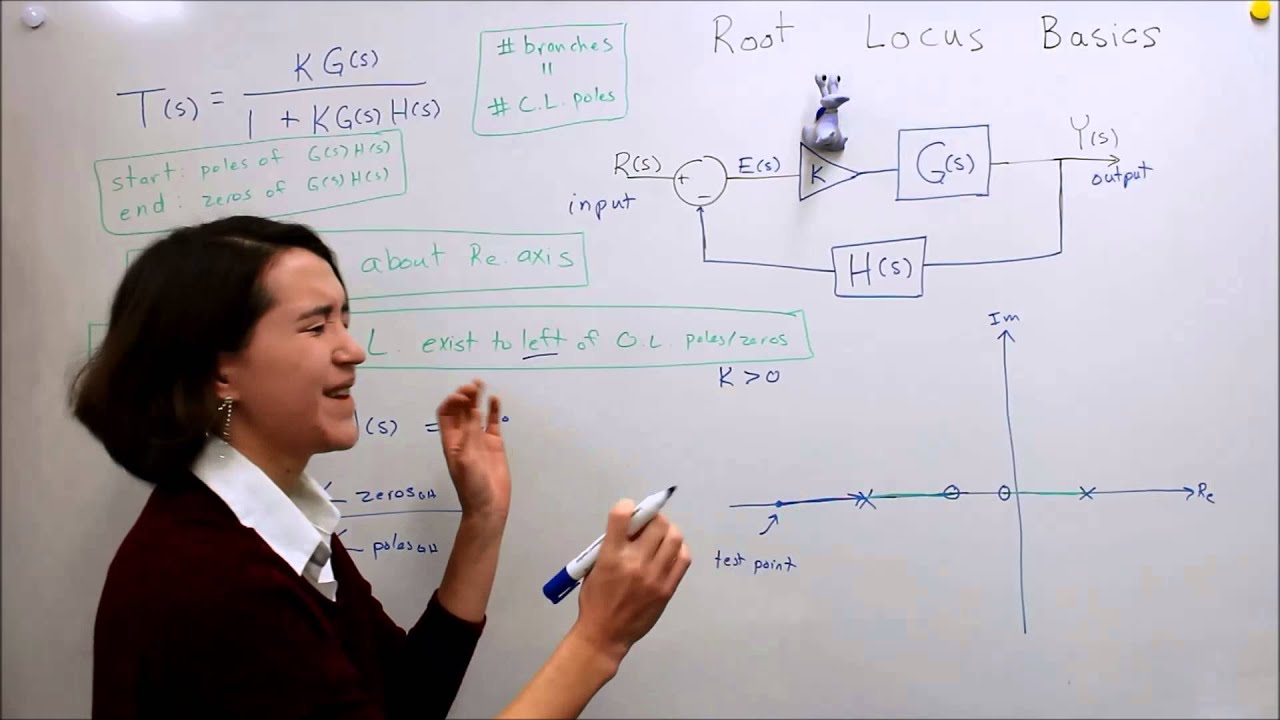 Root Locus Basics
T(s) = KG(s)
1 + KG(s)H(s)
# branches
=
# C.L. poles
start: poles of G(s)H(s)
end: zeros of G(s)H(s)
about Re. axis
L. exist to left of O.L. poles/zeros
K > 0
(s) =
zeros GH
poles GH
R(s)
input
+
−
E(s)
K
G(s)
Y(s)
output
H(s)
Im
Re
test point